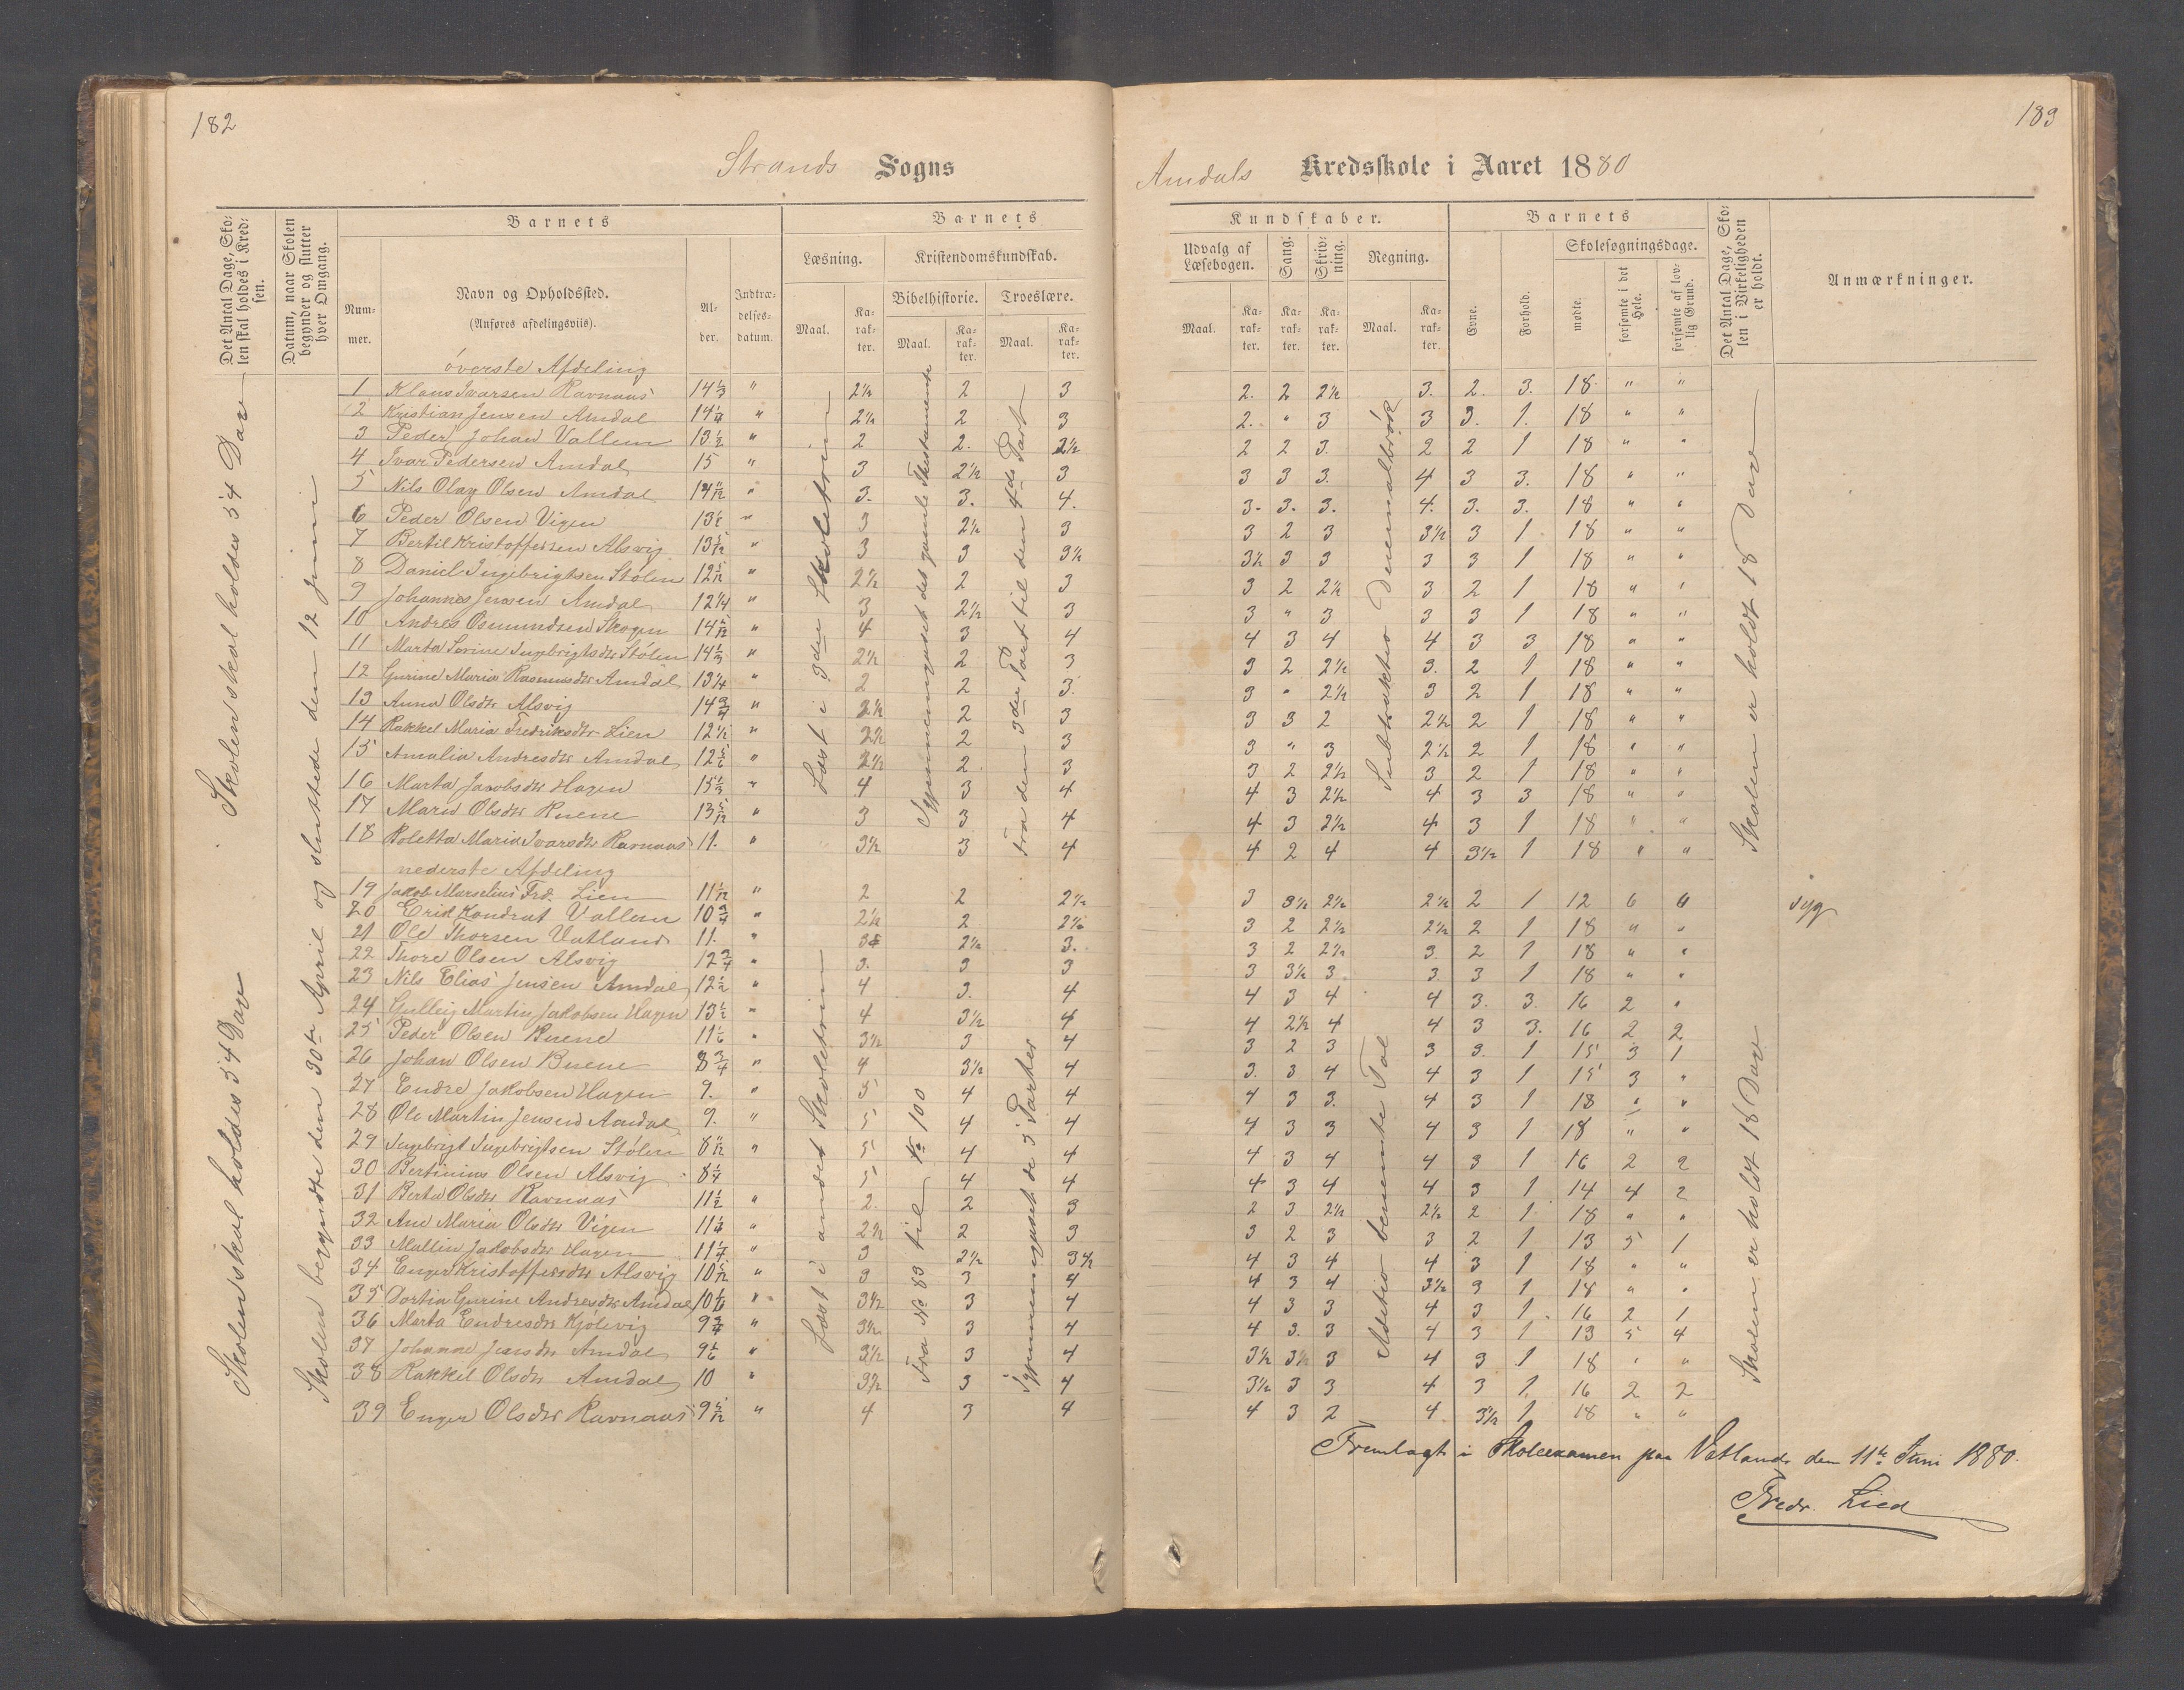 182
183
Strands Sogns
Amdals Kredsskole i Aaret 1880
Det Antal Dage, Sko-
len skal holdes i Kred-
sen.
Datum, naar Skolen
begynder og slutter
hver Omgang.
Barnets
Num-
mer.
Navn og Opholdssted.
(Anføres afdelingsviis).
Al-
der.
Indtræ-
delses-
datum.
Barnets
Læsning.
Kristendomskundskab.
Bibelhistorie. Troeslære.
Maal. Ka-
rak-
ter.
Maal. Ka-
rak-
ter.
Maal. Ka-
rak-
ter.
Kundskaber.
Udvalg af
Læsebogen.
Sang.
Skriv-
ning.
Regning.
Maal. Ka-
rak-
ter.
Ka-
rak-
ter.
Ka-
rak-
ter.
Maal. Ka-
rak-
ter.
Barnets
Evne.
Forhold.
Skolesøgningsdage.
mødte.
forsømte i det
Hele.
forsømte af lov-
lig Grund.
Det Antal Dage, Sko-
len i Virkeligheden
er holdt.
Anmærkninger.
Skolen skal holdes 54 Dage
Skolen skal holdes 54 Dage
Skolen begyndte den 30te April og sluttede den 12 Juni
øverste Afdeling
1 Klaus Ivarsen Ravnaas 14 1/3 " 2½ 2 3 2. 2 2½ 3. 2. 3. 18 " "
2 Kristian Jensen Amdal 14 1/4 " 2½ 2 3 2. " 3 3 3. 1. 18 " "
3 Peder Johan Vallem 13 1/2 " 2 2. 2½ 2 2 3. 2 2 1 18 " "
4 Ivar Pedersen Amdal 15 " 3 2½ 3 3 3 3. 4 3 3. 18 " "
5 Nils Olay Olsen Amdal 14 11/12 " 3. 3. 4. 3. 3. 3. 4. 3. 3. 18 " "
6 Peder Olsen Vigen 13 1/2 " 3 2½ 3 3 2 3 3½ 3 1 18 " "
7 Bertil Kristoffersen Alsvig 13 5/12 " 3 3 3½ 3½ 3 3 3 3 1 18 " "
8 Daniel Ingebrigtsen Stølen 12 5/12 " 2½ 2 3 3 2 2½ 3 2 1 18 " "
9 Johannes Jensen Amdal 12 1/4 " 3 2½ 3 3 " 3 3 3 1 18 " "
10 Andres Osmundsen Skogen 14 5/12 " 4 3 4 4 3 4 4 3 3 18 " "
11 Marta Serine Ingebrigtsdtr Stølen 14 1/3 " 2½ 2 3 3 2 2½ 3. 2 1 18 " "
12 Gurine Maria Rasmusdtr Amdal 13 1/4 " 2 2 3. 3 " 2½ 3 2 1 18 " "
13 Anna Olsdtr Alsvig 14 3/4 " 2½ 2 3 3 3 2 2½ 2 1 18 " "
14 Rakkel Maria Fredriksdtr Lien 12 1/2 " 2½ 2 3 3 " 3 2½ 2 1 18 " "
15 Amalia Andresdtr Amdal 12 5/6 " 2½ 2 3 3 2 2½ 3 2 1 18 " "
16 Marta Jacobsdtr Hagen 15 1/3 " 4 3 4 4 3 2½ 4 3 3 18 " "
17 Mari Olsdtr Ruene 13 5/12 " 3 3 4 4 3 2½ 4 3 1 18 " "
18 Boletta Maria Ivarsdtr Ravnaas 11. " 3½ 3 4 4 2 4 4 3½ 1 18 " "
Læst i 3die Skoletrin
Igjennemgaaet det gamle Thestamente
Fra den 3die Part til den 4de Part
Subtraktion Decimalbrøk
Skolen er holdt 18 Dage
nederste Afdeling
19 Jakob Marselius Frd. Lien 11 1/12 " 2 2 2½ 3 3½ 2½ 2½ 2 1 12 6 6 syg
20 Erik Kondrat Vallem 10 3/4 " 2½ 2 2½ 3 2 2½ 2½ 2 1 18 " "
21 Ole Thorsen Vatland 11. " 3 2½ 3. 3 2 2½ 3 2 1 18 " "
22 Thore Olsen Alsvig 12 3/4 " 3. 3 3 3 3½ 3 3 3 1 18 " "
23 Nils Elias Jensen Amdal 12 1/2 " 4 3. 4 4 3 4 4 3. 3. 16 2 "
24 Gulleig Martin Jakobsen Hagen 13 1/2 " 4 3½ 4 4 2½ 4 4 3 3. 16 2 2
25 Peder Olsen Ruene 11 1/6 " 3½ 3 4 3 2 3 3 3. 1 15 3 1
26 Johan Olsen Ruene 8 3/4 " 4 3½ 4 3. 3 4 4 3 1 15 3 "
27 Endre Jakobsen Hagen 9. " 5 4 4 4 3 3. 4 3 1 18 " "
28 Ole Martin Jensen Amdal 9. " 5 4 4 4 3 3 4 3 1 18 " "
29 Ingebrigt Ingebrigtsen Stølen 8 11/12 " 5 4 4 4 3 4 4 3 1 16 2 2
30 Bertinius Olsen Alsvig 8 1/4 5 4 4 4 3 4 4 3 1 14 4 2
31 Berta Olsdtr Ravnaas 11 1/2 " 2. 2 3 2 3 2½ 2½ 2 1 18 " "
32 Ane Maria Olsdtr Vigen 11 1/4 " 2½ 2 3 3 2 3 3 2 1 13 5 1
33 Mallin Jakobsdtr Hagen 11 1/4 " 3 2½ 3½ 4 3 4 4 3 1 18 " "
34 Enger Kristoffersdtr Alsvig 10 5/12 " 3 3 4 4 3 4 3½ 3 1 18 " "
35 Dortia Gurine Andresdtr Amdal 10 1/6 " 3½ 3 4 4 3 3 4 3 1. 16 2 1
36 Marta Endresdtr Kjølevig 9 3/4 " 3½ 3 4 4 3. 3 4 3 1 13 5 4
37 Johanne Jensdtr Amdal 9 1/6 " 3½ 3 4 3½ 3½ 3 4 3 1 18 " "
38 Rakkel Olsdtr Amdal 10 " 3½ 3 4 3½ 3 3 4 3 1 16 2 2
39 Enger Olsdtr Ravnaas 9 5/12 " 4 3 4 4 3 2 4 3½ 1 18 " "
Læst i andet Skoletrin
Fra No 83 til No 100
Igjennemgaaet de 3 Parter
Addition benevnte Tal
Skolen er holdt 18 Dage
Fremlagt i Skoleexamen paa Vatland den 11te Juni 1880.
Fredr. Lied